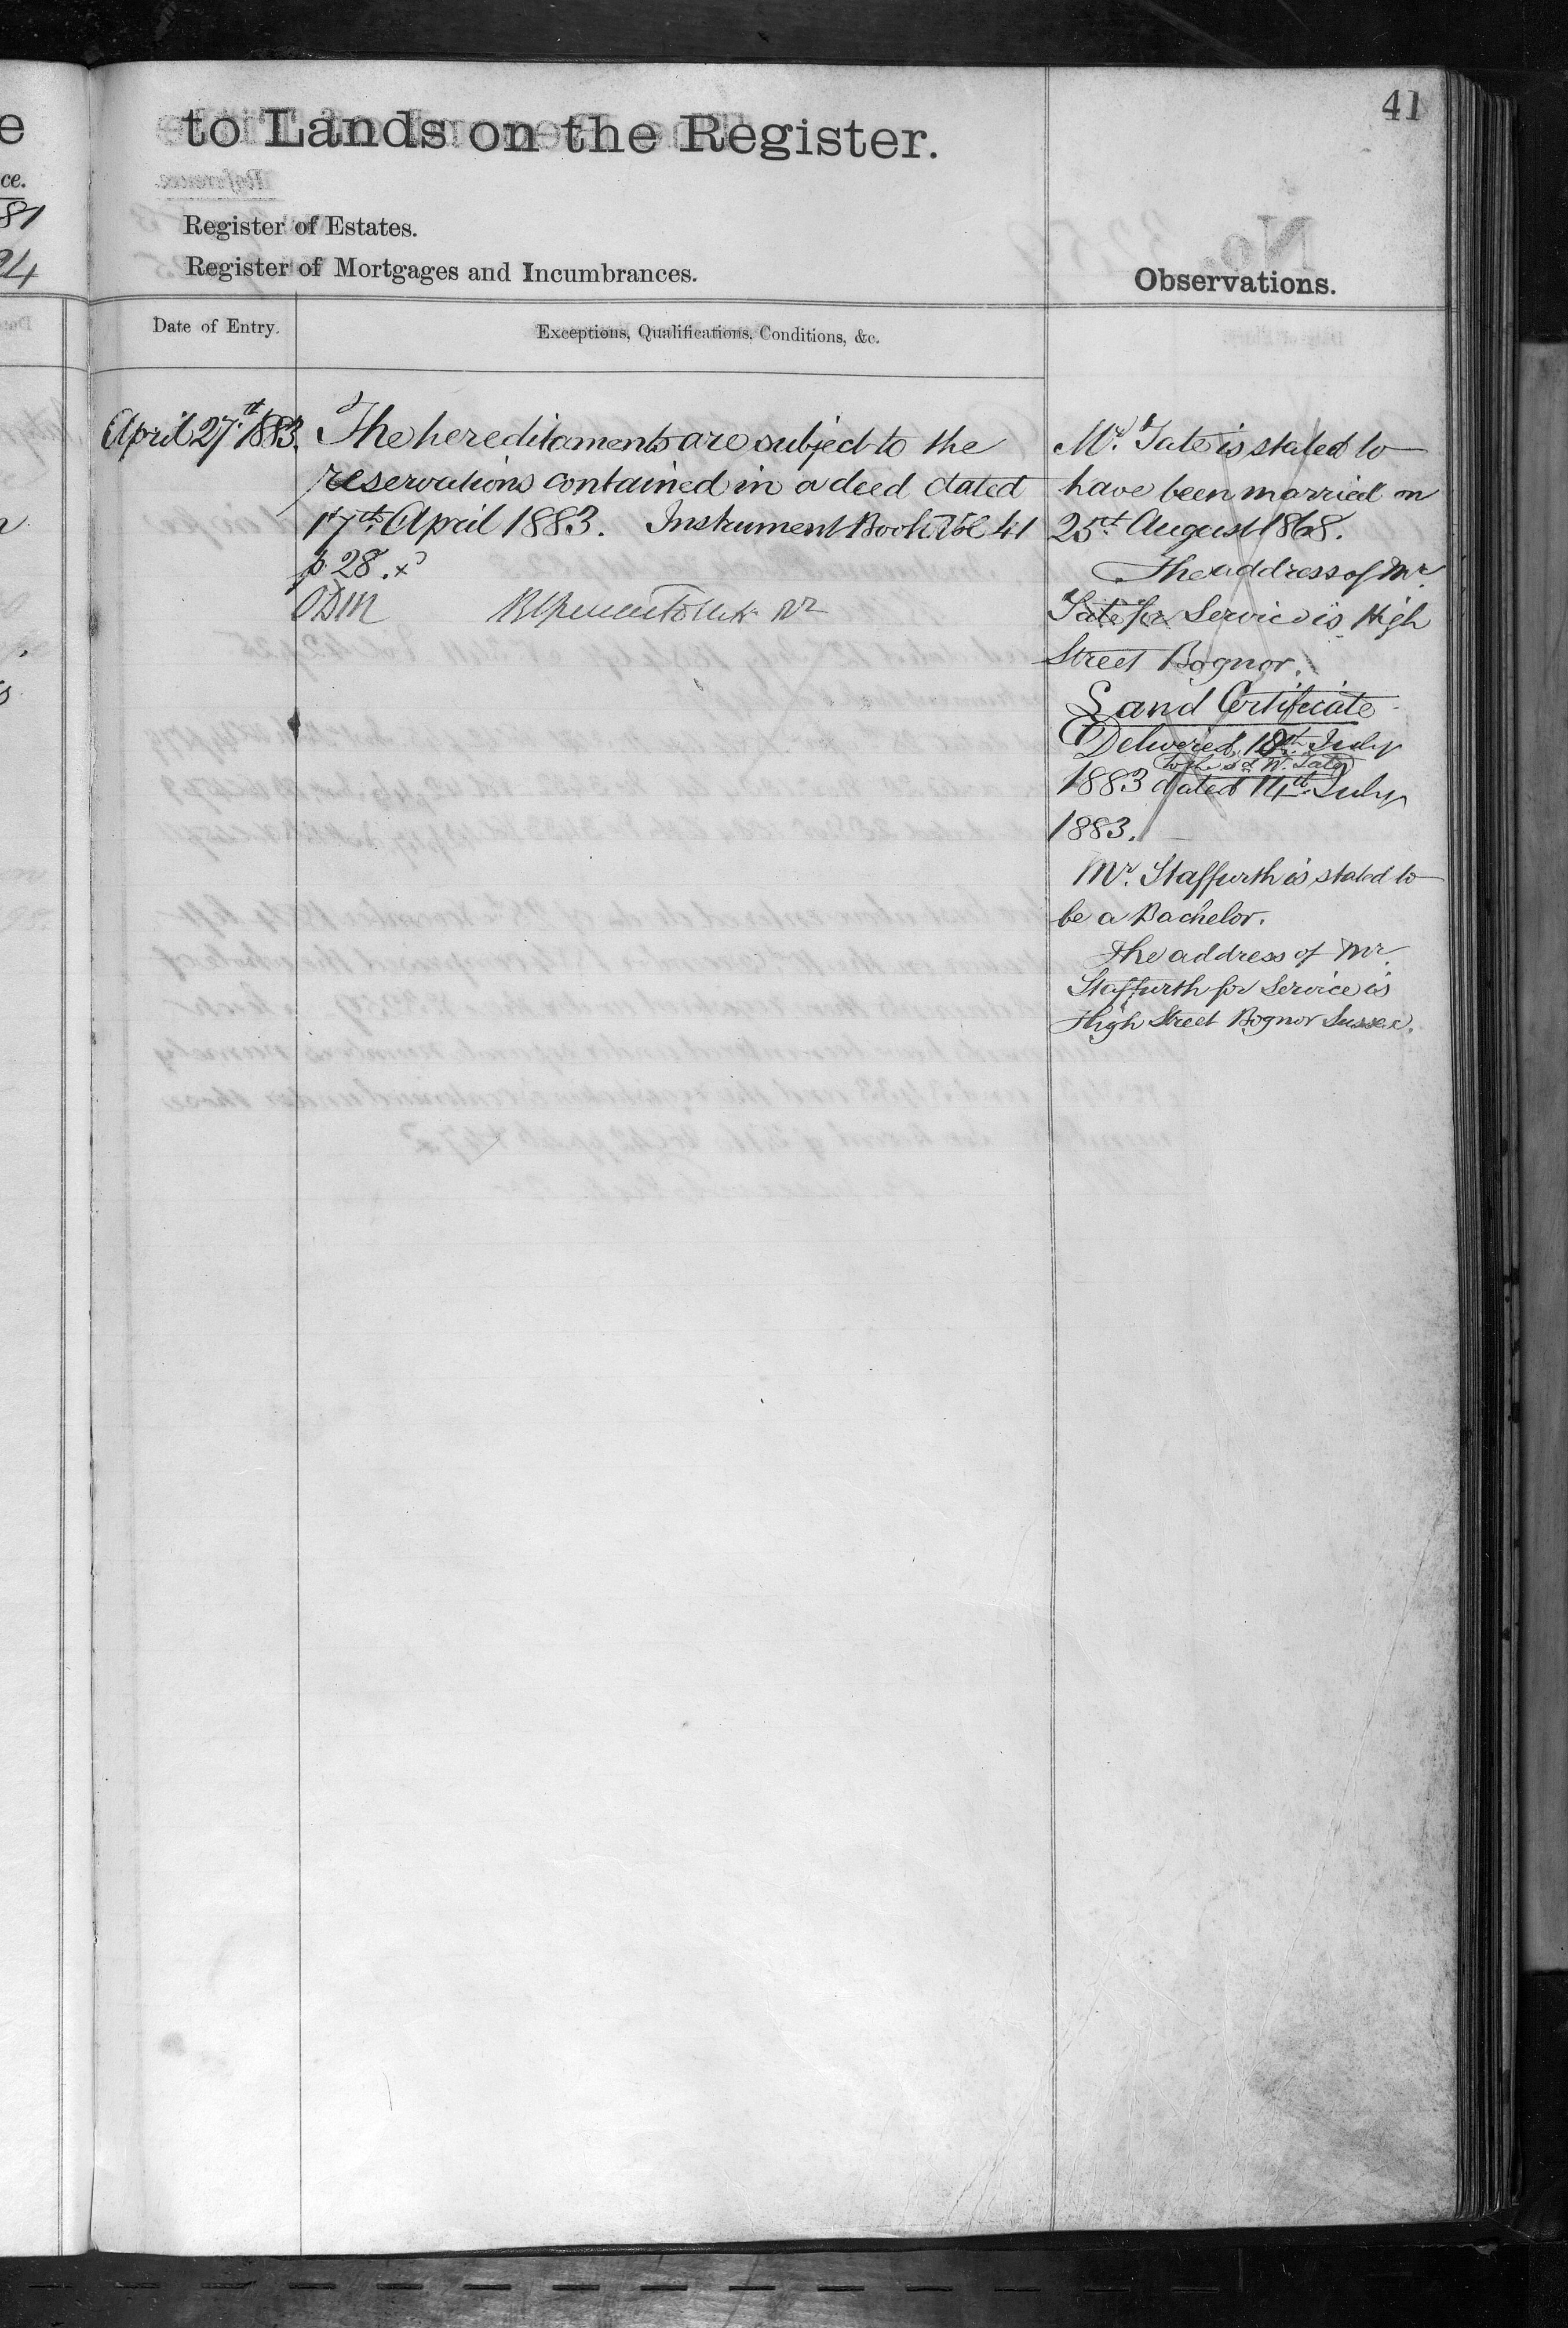 41
to Lands on the Register.
Register of Estates.
Register of Mortgages and Incumbrances.
Observations.
Date of Entry.
Exceptions, Qualifications, Conditions, &c.
April 27th 1883.
The hereditaments are subject to the
reservations contained in a deed dated
17th April 1883. Instrument Book Vol 41
p 28. x
Mr. Tate is stated to
have been married on
25th August 1868.
The address of Mr
Tate for Service is High
Street Bognor.
Land Certificate
Delivered 18th July
to the sd W. Tate
1883 dated 14th July
1883.
Mr. Staffurth is stated to
be a Bachelor.
The address of Mr.
Staffurth for Service is
High Street Bognor Sussex.
e
ce.
81
24